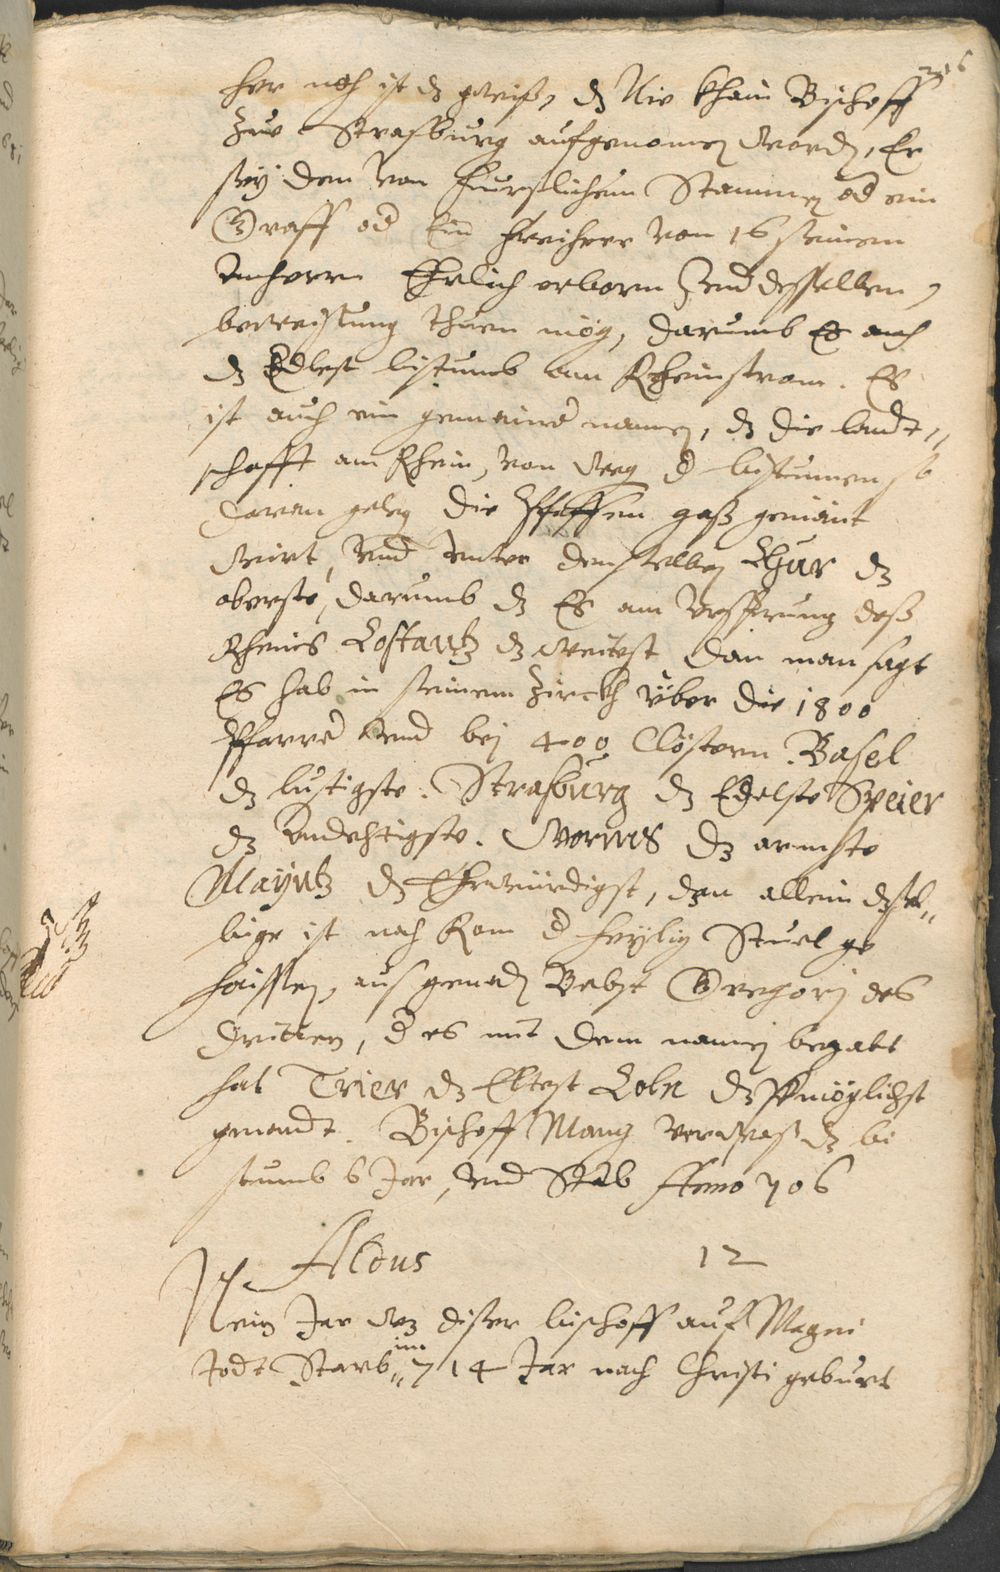 216
her noch ist dz gwiß, dz Nie khain Bischoff
Zue Strasburg aufgenomen worden, Er
sey den von Fürstlichem Stammen od ein
Graff od Ein Freiherr von 16 seinem
Anherrn Ehrlich erborn Und desselben,
beweisung thuen mög, darumb Es auch
dz Edlest bistumb am Rheinstrom. Es
ist auch ein gemainer namen, dz die landt„
schafft am Rhein, von weg d bistumen so
daran geleg die Pfaffen gaß genänt
wirt, Und unter denselben Chur dz
oberste, darumb dz Es am Ursprung deß
Rheins Costantz dz weitest dan man sagt
Es hab in seinem Zirckh über die 1800
Pfarre und bej 400 Clöstern. Basel
dz lustigste. Strasburg dz Edelste Speier
dz andechtigste. Worms dz armste
Mayntz dz Ehrwürdigst, dan allein dassel„
bige ist nach Rom d heylig Stuel ge
haissen, aus genad Babst Gregorj des
dritten, d es mit dem namen begabt
hat Trier dz Eltest Coln dz vermöglichst
genandt. Bischoff Mang verwaß dz bi
stumb 6 Jar, und Starb Anno 706
Aldus 12
Neun Jar wz diser bischoff auf Magni
todt Starb im 714 Jar nach Christi geburt